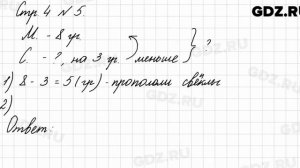 GDZ.RU
Стр. 4 № 5.
М. - 8 гр.
С. - ?, на 3 гр. меньше
?
1) 8 - 3 = 5 (гр) - прополали свёклы
2)
Ответ:
GDZ.RU